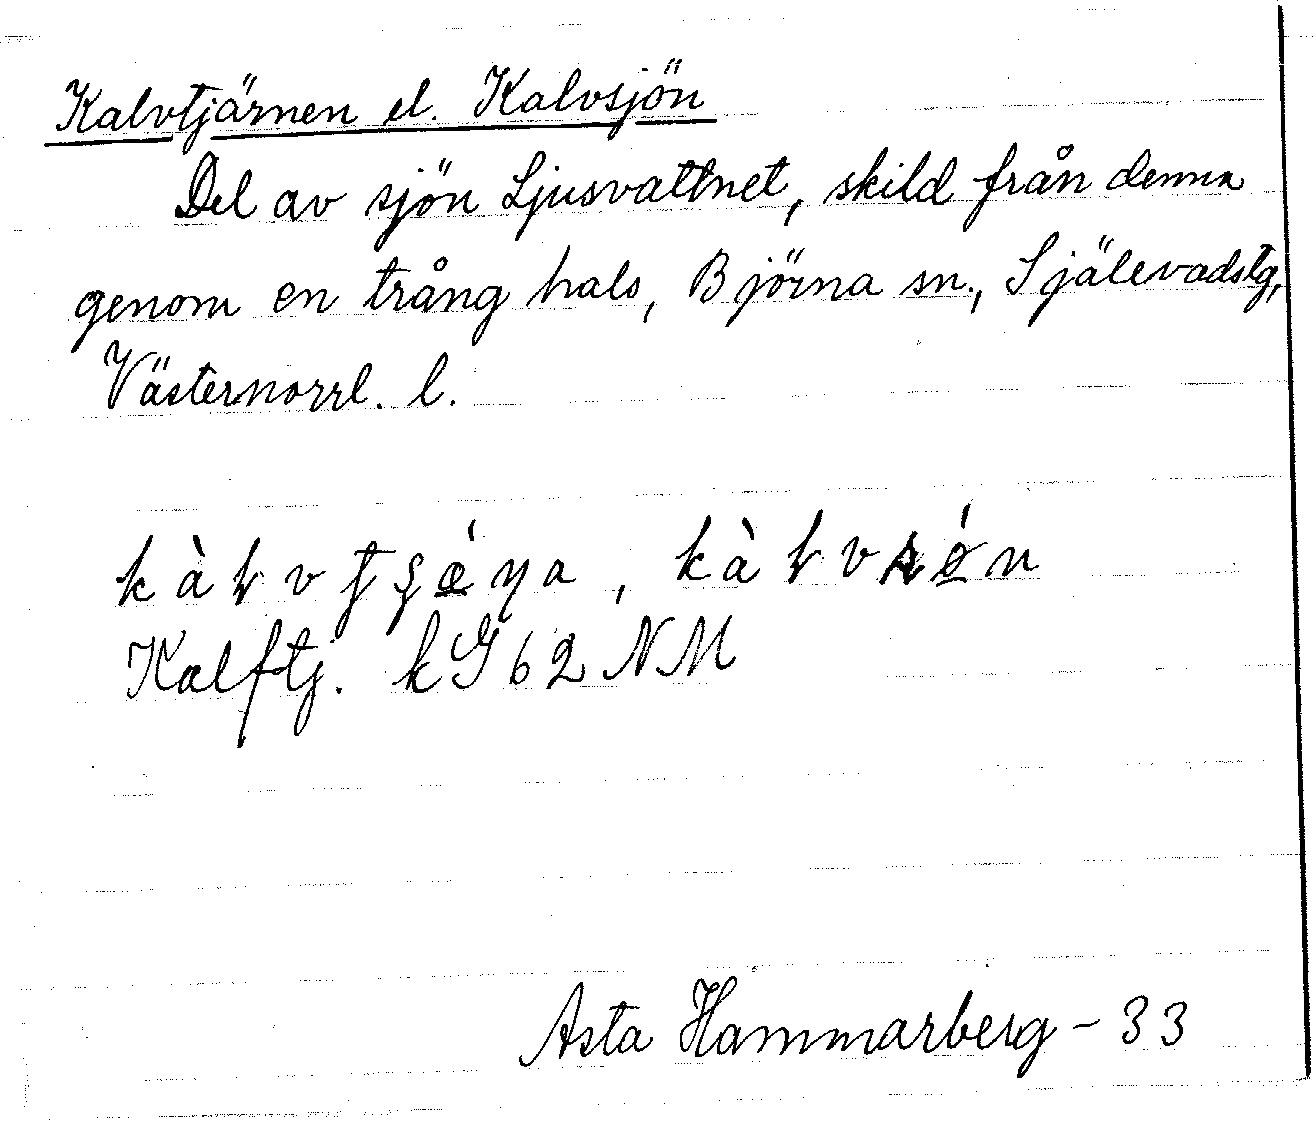 Kalvtjärnen el. Kalvsjön
Del av sjön Ljusvattnet, skild från denna
genom en trång hals, Björna sn., Själevadstg,
Västernorrl. l.
Kalftj. kG 62 NM
Asta Hammarberg - 33